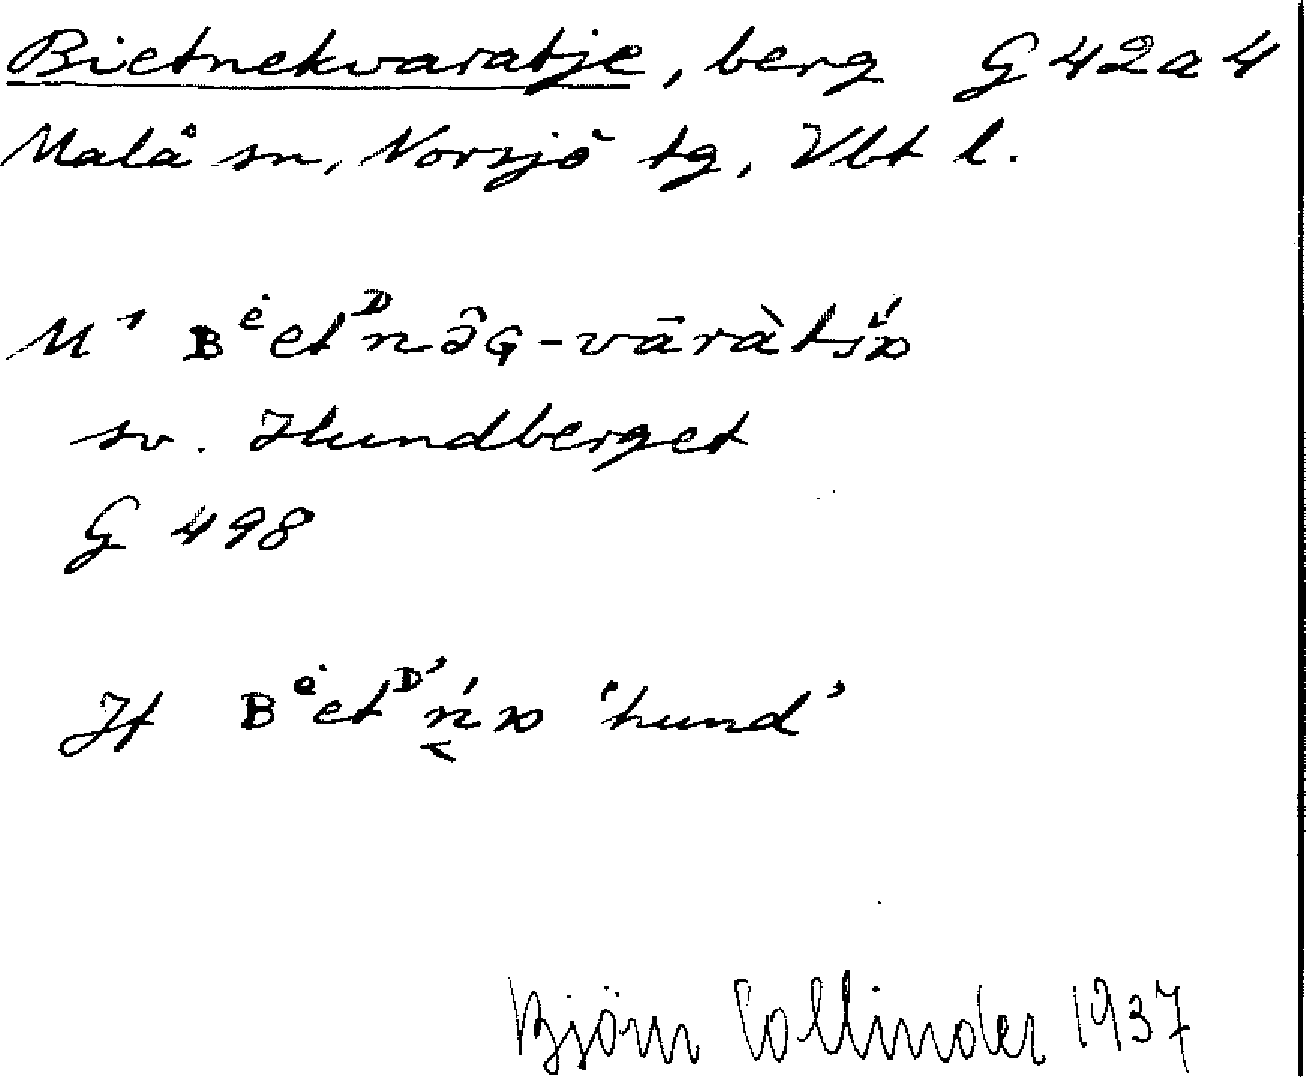 Bietnekvaratje, berg G 42 a 4
Malå sn, Norsjö tg, Vbt l.
M¹ ʙᵉ̇etᴰnə̂ɢ-vāràtśɒ
sv. Hundberget
G 498
Jf ʙᵉ̇etᴰ'ń̬ɒ 'hund'
Björn Collinder 1937